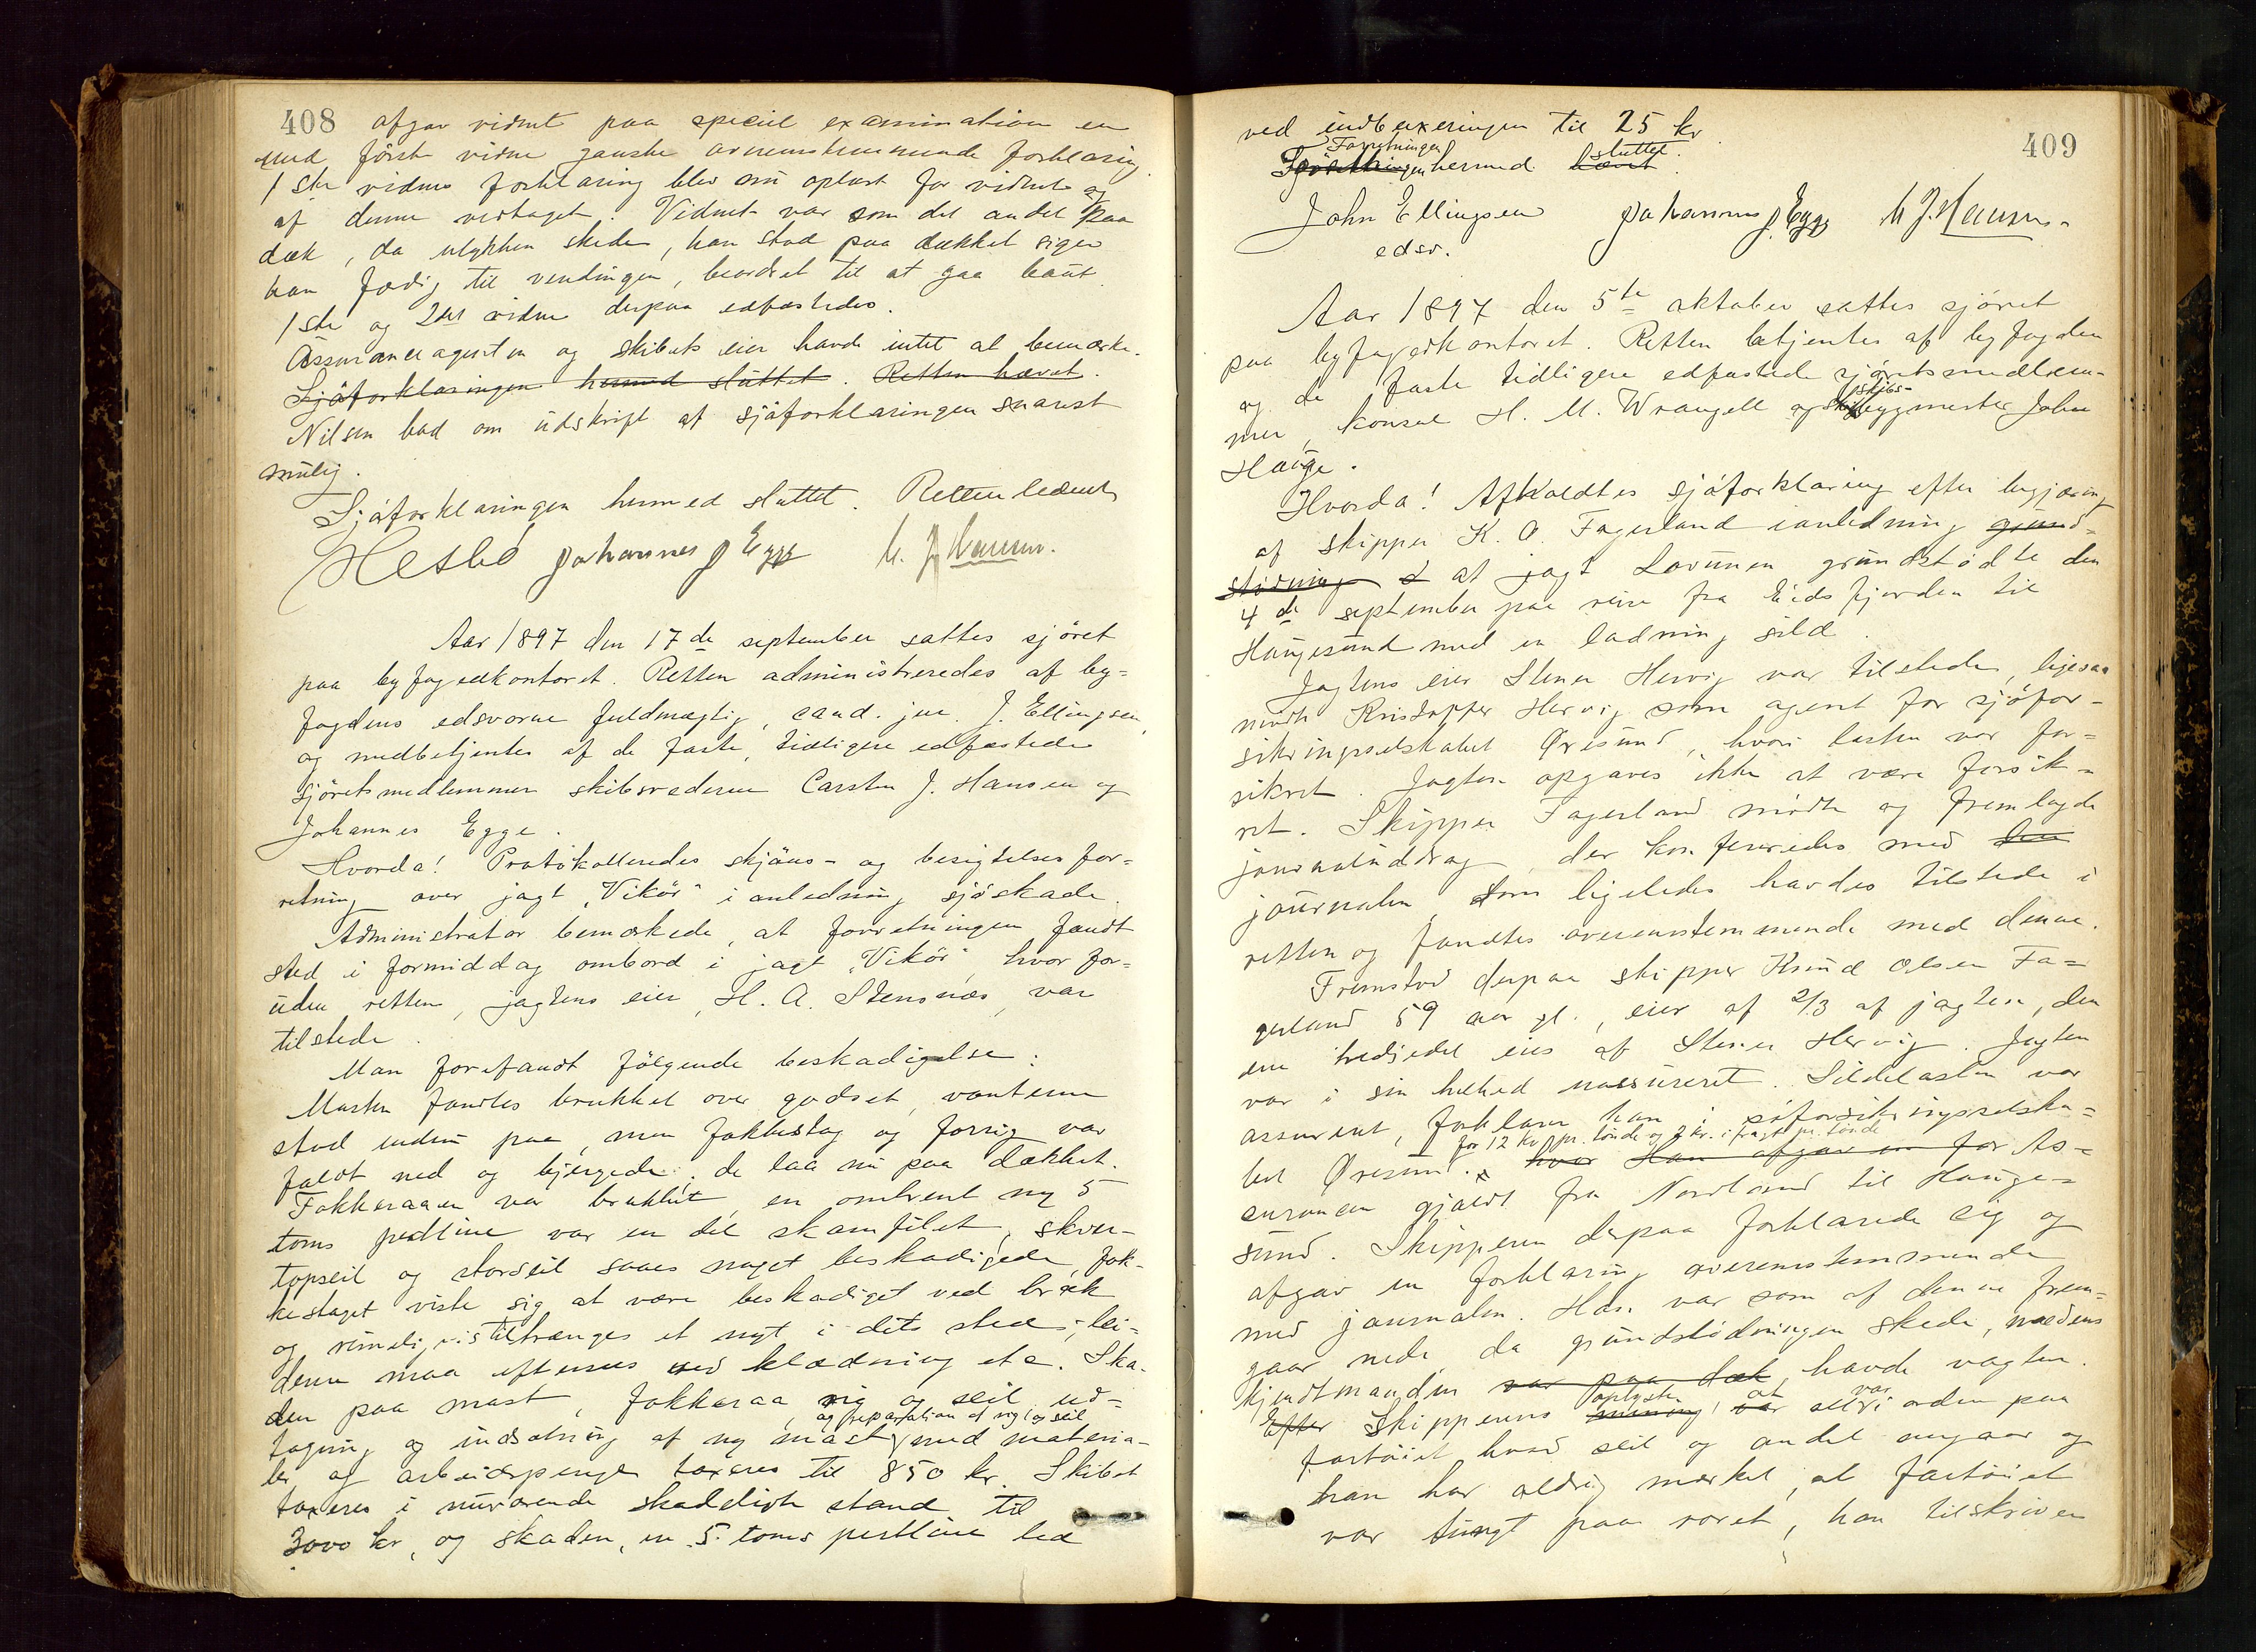 408
afgav vidnet paa speciel examination en
med første vidne ganske overensstemmende forklaring.
1ste vidnes forklaring blev nu oplæst for vidnet og
af denne vedtaget. Vidnet var som det andet paa
dæk, da ulykken skede, han stod paa dækket siger
han færdig til vendingen, beordret til at gaa baut.
1ste og 2det vidne derpaa edfæstedes.
Assuranceagenten og skibets eier havde intet at bemærke.
Sjøforklaringen hermed sluttet. Retten hævet.
Nilsen bad om udskrift af sjøforklaringen snarest
mulig.
Sjøforklaringen hermed sluttet. Retten
Hesbø Johannes Egge C. J. Hansen.
Aar 1897 den 17de september sattes sjøret
paa byfogedkontoret. Retten administreredes af by-
fogdens edsvorne fuldmægtig, cand. jur. J. Ellingsen,
og medbetjentes af de faste, tidligere edfæstede
sjøretsmedlemmer skibsrederne Carsten J. Hansen og
Johannes Egge.
Hvorda! Protokolleredes skjøns- og besigtelsesfor-
retning over jagt "Vikør" i anledning sjøskade.
Administrator bemærkede, at forretningen fandt
sted i formiddag ombord i jagt "Vikør", hvor for-
uden retten, jagtens eier, H. A. Stensnæs, var
tilstede.
Man forefandt følgende beskadigelse:
Masten fandtes brukket over godset, vanterne
stod endnu paa, men fokkestag og forrig var
faldt ned og bjergede; de laa nu paa dækket.
Fokkeraaen var brukket, en omtrent ny 5
toms pertline var en del skamfilet, skver-
topseil og storseil saaes noget beskadigede, fok-
kestaget viste sig at være beskadiget ved bræk
og rimeligvis tiltrænges et nyt i dets sted; lei-
derne maa eftersees ved klædning etc. Ska-
den paa mast, fokkeraa, rig og seil ud-
og reparation af rig og seil
tagning og indsætning af ny mast med materia-
ler og arbeidspenge taxeres til 850 kr. Skibet
taxeres i nuværende skadeligte stand til
3000 kr, og skaden, en 5 toms pertline led
409
ved indbuxeringen til 25 kr.
Forretningen sluttet.
hermed hævet.
John Ellingsen Johannes Egge C J. Hansen.
edsv.
Aar 1897 den 5te oktober sattes sjøret
paa byfogedkontoret. Retten betjentes af byfogden
og de faste tidligere edfæstede sjøretsmedlem-
skibs-
mer, konsul H. M. Wrangell og bygmester John
Hauge.
Hvorda! Afholdtes sjøforklaring efter begjæring
af skipper K. O. Fagerland i anledning grund-
stødning at jagt Lovunen grundstødte den
4de september paa reise fra Eidsfjorden til
Haugesund med en ladning sild.
Jagtens eier Stener Hervig var tilstede, ligesaa
mødte Kristoffer Hervig som agent for sjøfor-
sikringsselskabet Øresund, hvori lasten var for-
sikret. Jagten opgaves ikke at være forsik-
ret. Skipper Fagerland mødte og fremlagde
journaluddrag, der konfereredes med den
journalen, som ligeledes havdes tilstede i
retten og fandtes overensstemmende med denne.
Fremstod derpaa skipper Knud Olsen Fa-
gerland 59 aar gl., eier af 2/3 af jagten, den
ene tredjedel eies af Stener Hervig. Jagten
var i sin helhed uassureret. Sildelasten var
assureret, forklarer han i søforsikringsselska-
for 12 kr pr. tønde og 2 kr. i fragt pr. tønde
bet Øresund. hvor Han afgav en for As-
surancen gjaldt fra Nordland til Hauge-
sund. Skipperen derpaa forklarede sig og
afgav en forklaring overensstemmende
med journalen. Han var som af denne frem-
gaar nede, da grundstødningen skede, medens
kjendtmanden var paa dæk, havde vagten.
oplyste at var
Efter Skipperens mening, var alt i orden paa
fartøiet, hvad seil og andet angaar og
han har aldrig mærket, at fartøiet
var tungt paa roret, han tilskriver